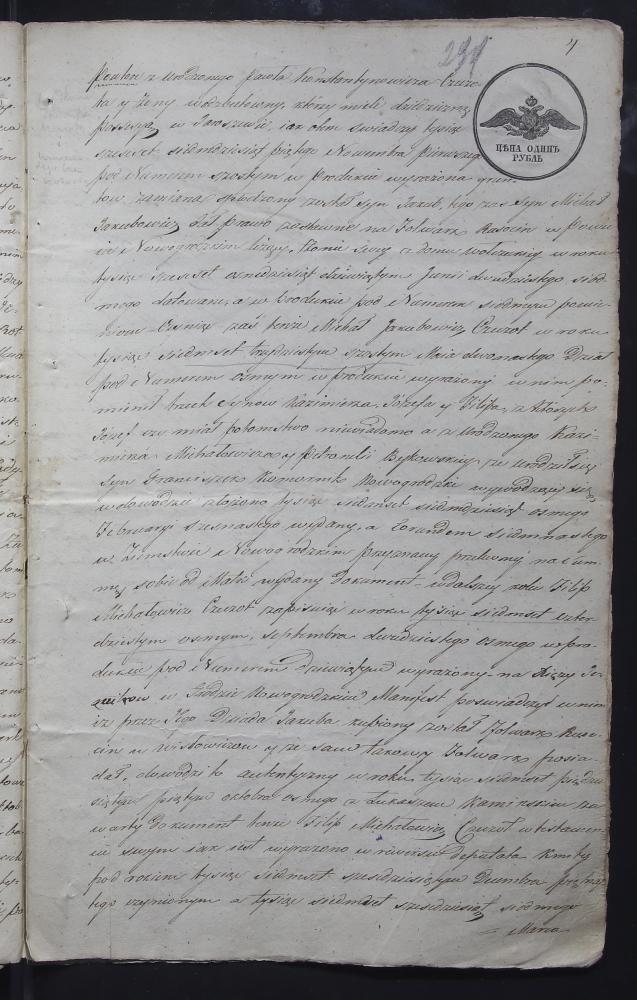 4
291
ЦѢНА ОДИНЪ
РУБЛЬ
z urodzonego Pawła Konstantynowicza Czuzo-
ta y Żony, który mieli dziedziczną
possessyą w, iak ohm swiadczy tysiąc
szescset siedmdziesiąt piątego Nowembra pierwszego
pod Numerem szostym w Produkcie wyrażona gran-
tow zamiana spłodzony został syn Jakub, tego zas syn Michał
Jakubowicz dał prawo zastawne na Folwark Rusocin w Powie-
cie Nowogrodzkim leżący, Żonie swey z domu w roku
tysiąc szescset osmdziesiąt dziewiątym Junii dwudziestego siod-
mego datowane, a w Produkcie pod Numerem siodmym pomie-
nione zaś tenże Michał Jakubowicz Czuzot w roku
tysiąc siedmset trzydziestym szostym Maia dwunastego Dział
pod Numerem osmym w Produkcie wyrażony w nim po-
mienił trzech Synow Kazimierza, Józefa y Filipa, z których
Józef czy miał potomstwo niewiadomo a z urodzonego Kazi-
mierza Michałowicza y Petronelli Bykowskiey urodził się
syn Franciszek Komornik Nowogrodzki wywodzący się
w dowodzie złożono tysiąc siedmset siedmdziesiąt osmego
Februaryi szesnastego wydany, a eorundem siedmnastego
w Ziemstwie Nowogrodzkim przyznany na sum-
mę sobie od Matki wydany Dokument w dalszey Filip
Michałowicz Czuzot zapisując w roku tysiąc siedmset czter-
dziestym osmym, Septembra dwudziestego osmego w pro-
dukcie pod Numerem dziewiątym wyrażony na Xięży Je-
zuitow w Grodzie Nowogrodzkim Manifest poswiadczył w nim
iż przez Jego Dziada Jakuba kupiony został Folwark Ruso-
cin u y że sam takowy Folwark posia-
dał, dowodzi to autentyczny w roku tysiąc siedmset pięćdzie-
siątym piątym Oktobra osmego z Łukaszem Kaminskim za-
warty Dokument tenże Filip Michałowicz Czuzot w testamen-
cie swym iak iest wyrażono w rewersie Deputata Kmity
pod rokiem tysiąc siedmset szescdziesiątym Decembra
tego uczynionym a tysiąc siedmset szescdziesiąt siodmego
= Marca